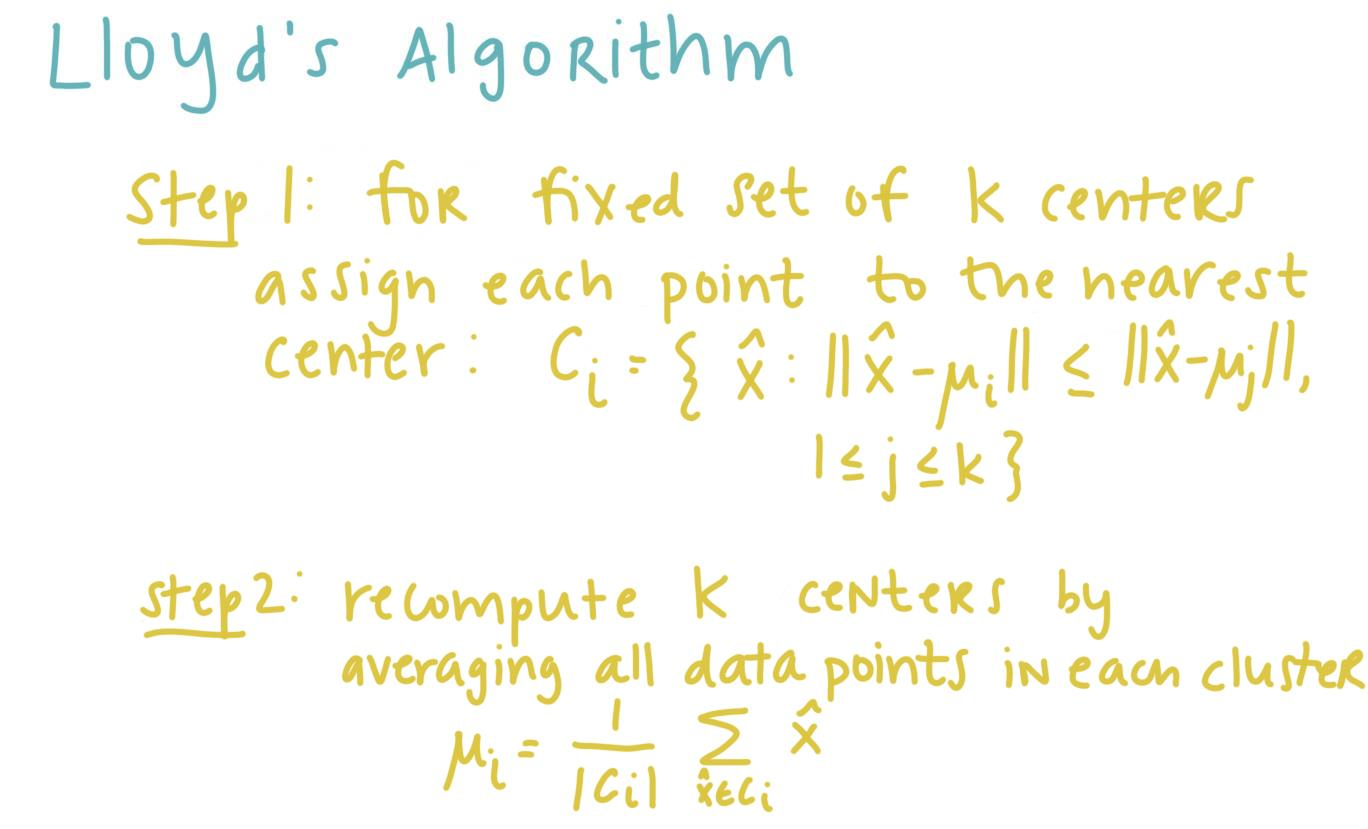 Lloyd's Algorithm
Step 1: for fixed set of k centers
assign each point to the nearest
center: Cᵢ = { x̂ : ||x̂ - μᵢ|| ≤ ||x̂ - μⱼ||,
1 ≤ j ≤ k }
step 2: recompute k centers by
averaging all data points in each cluster
μᵢ = 1/|Cᵢ| Σ_{x̂∈Cᵢ} x̂